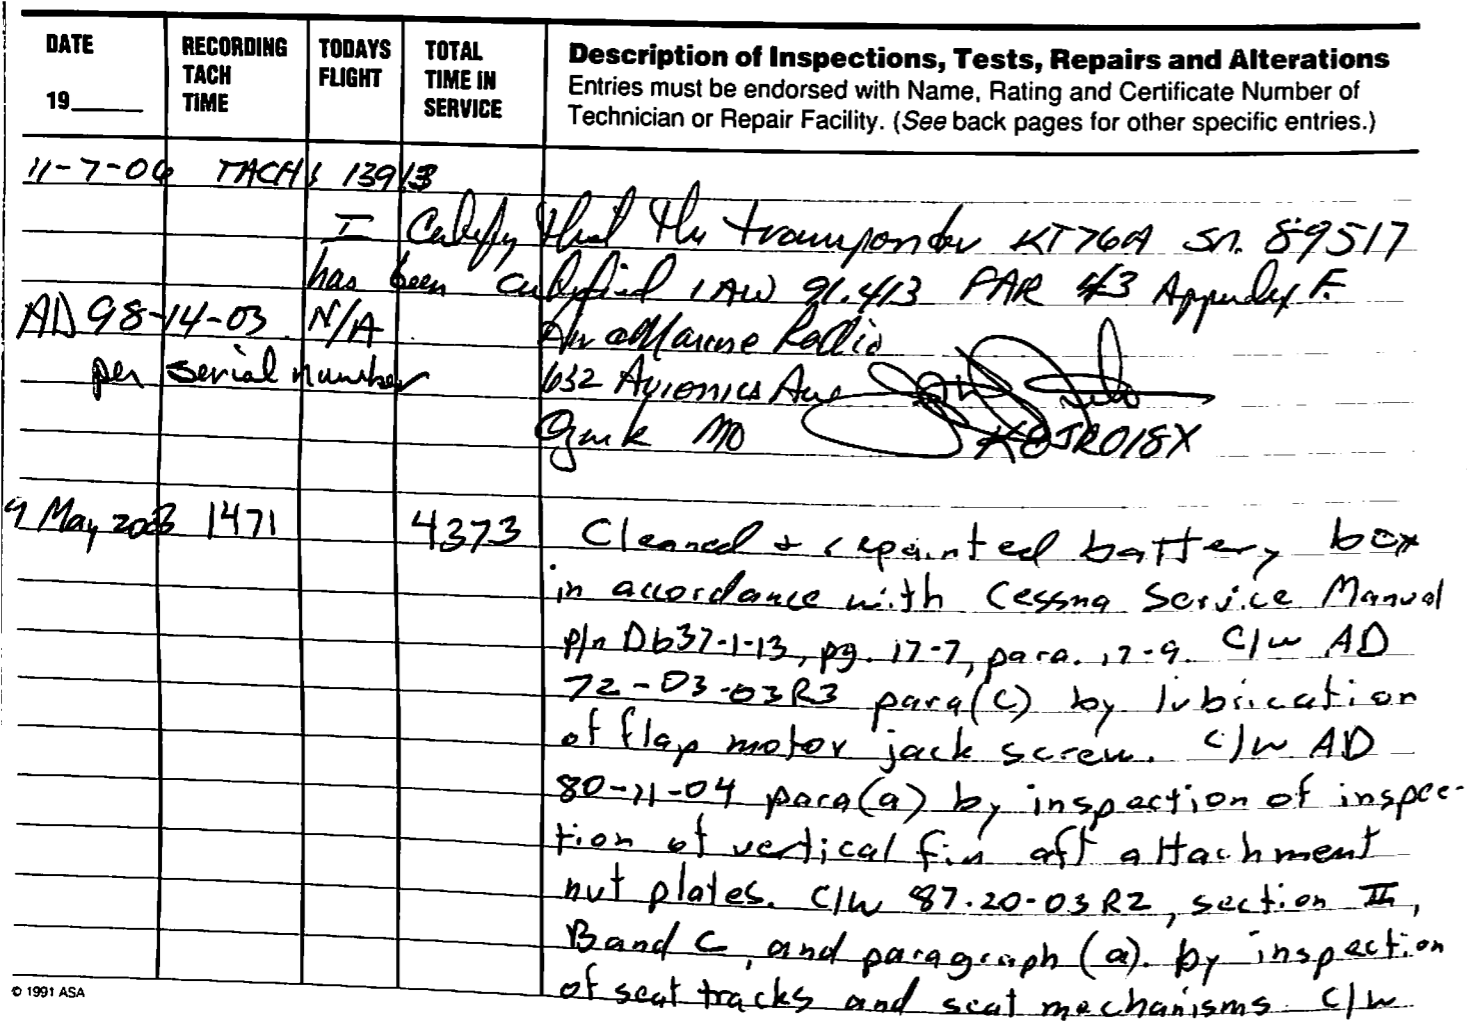 DATE
19____
RECORDING
TACH
TIME
TODAYS
FLIGHT
TOTAL
TIME IN
SERVICE
Description of Inspections, Tests, Repairs and Alterations
Entries must be endorsed with Name, Rating and Certificate Number of
Technician or Repair Facility. (See back pages for other specific entries.)
11-7-06 TACH 1391.3
I Certify that the transponder KT76A sn. 89517
has been certified IAW 91.413 FAR 43 Appendix F.
AD 98-14-03 N/A
per serial number
Marine Radio
632 Avionics Ave
Ozark MO
K8JR018X
9 May 2008 1471 4373 Cleaned & repainted battery box
in accordance with Cessna Service Manual
p/n D637-1-13, pg. 17-7, para. 17-9. C/W AD
72-03-03R3 para(C) by lubrication
of flap motor jack screw. C/W AD
80-11-04 para(a) by inspection of inspec-
tion of vertical fin aft attachment
nut plates. C/W 87-20-03 R2, section II,
B and C, and paragraph (a). by inspection
of seat tracks and seat mechanisms C/W
© 1991 ASA